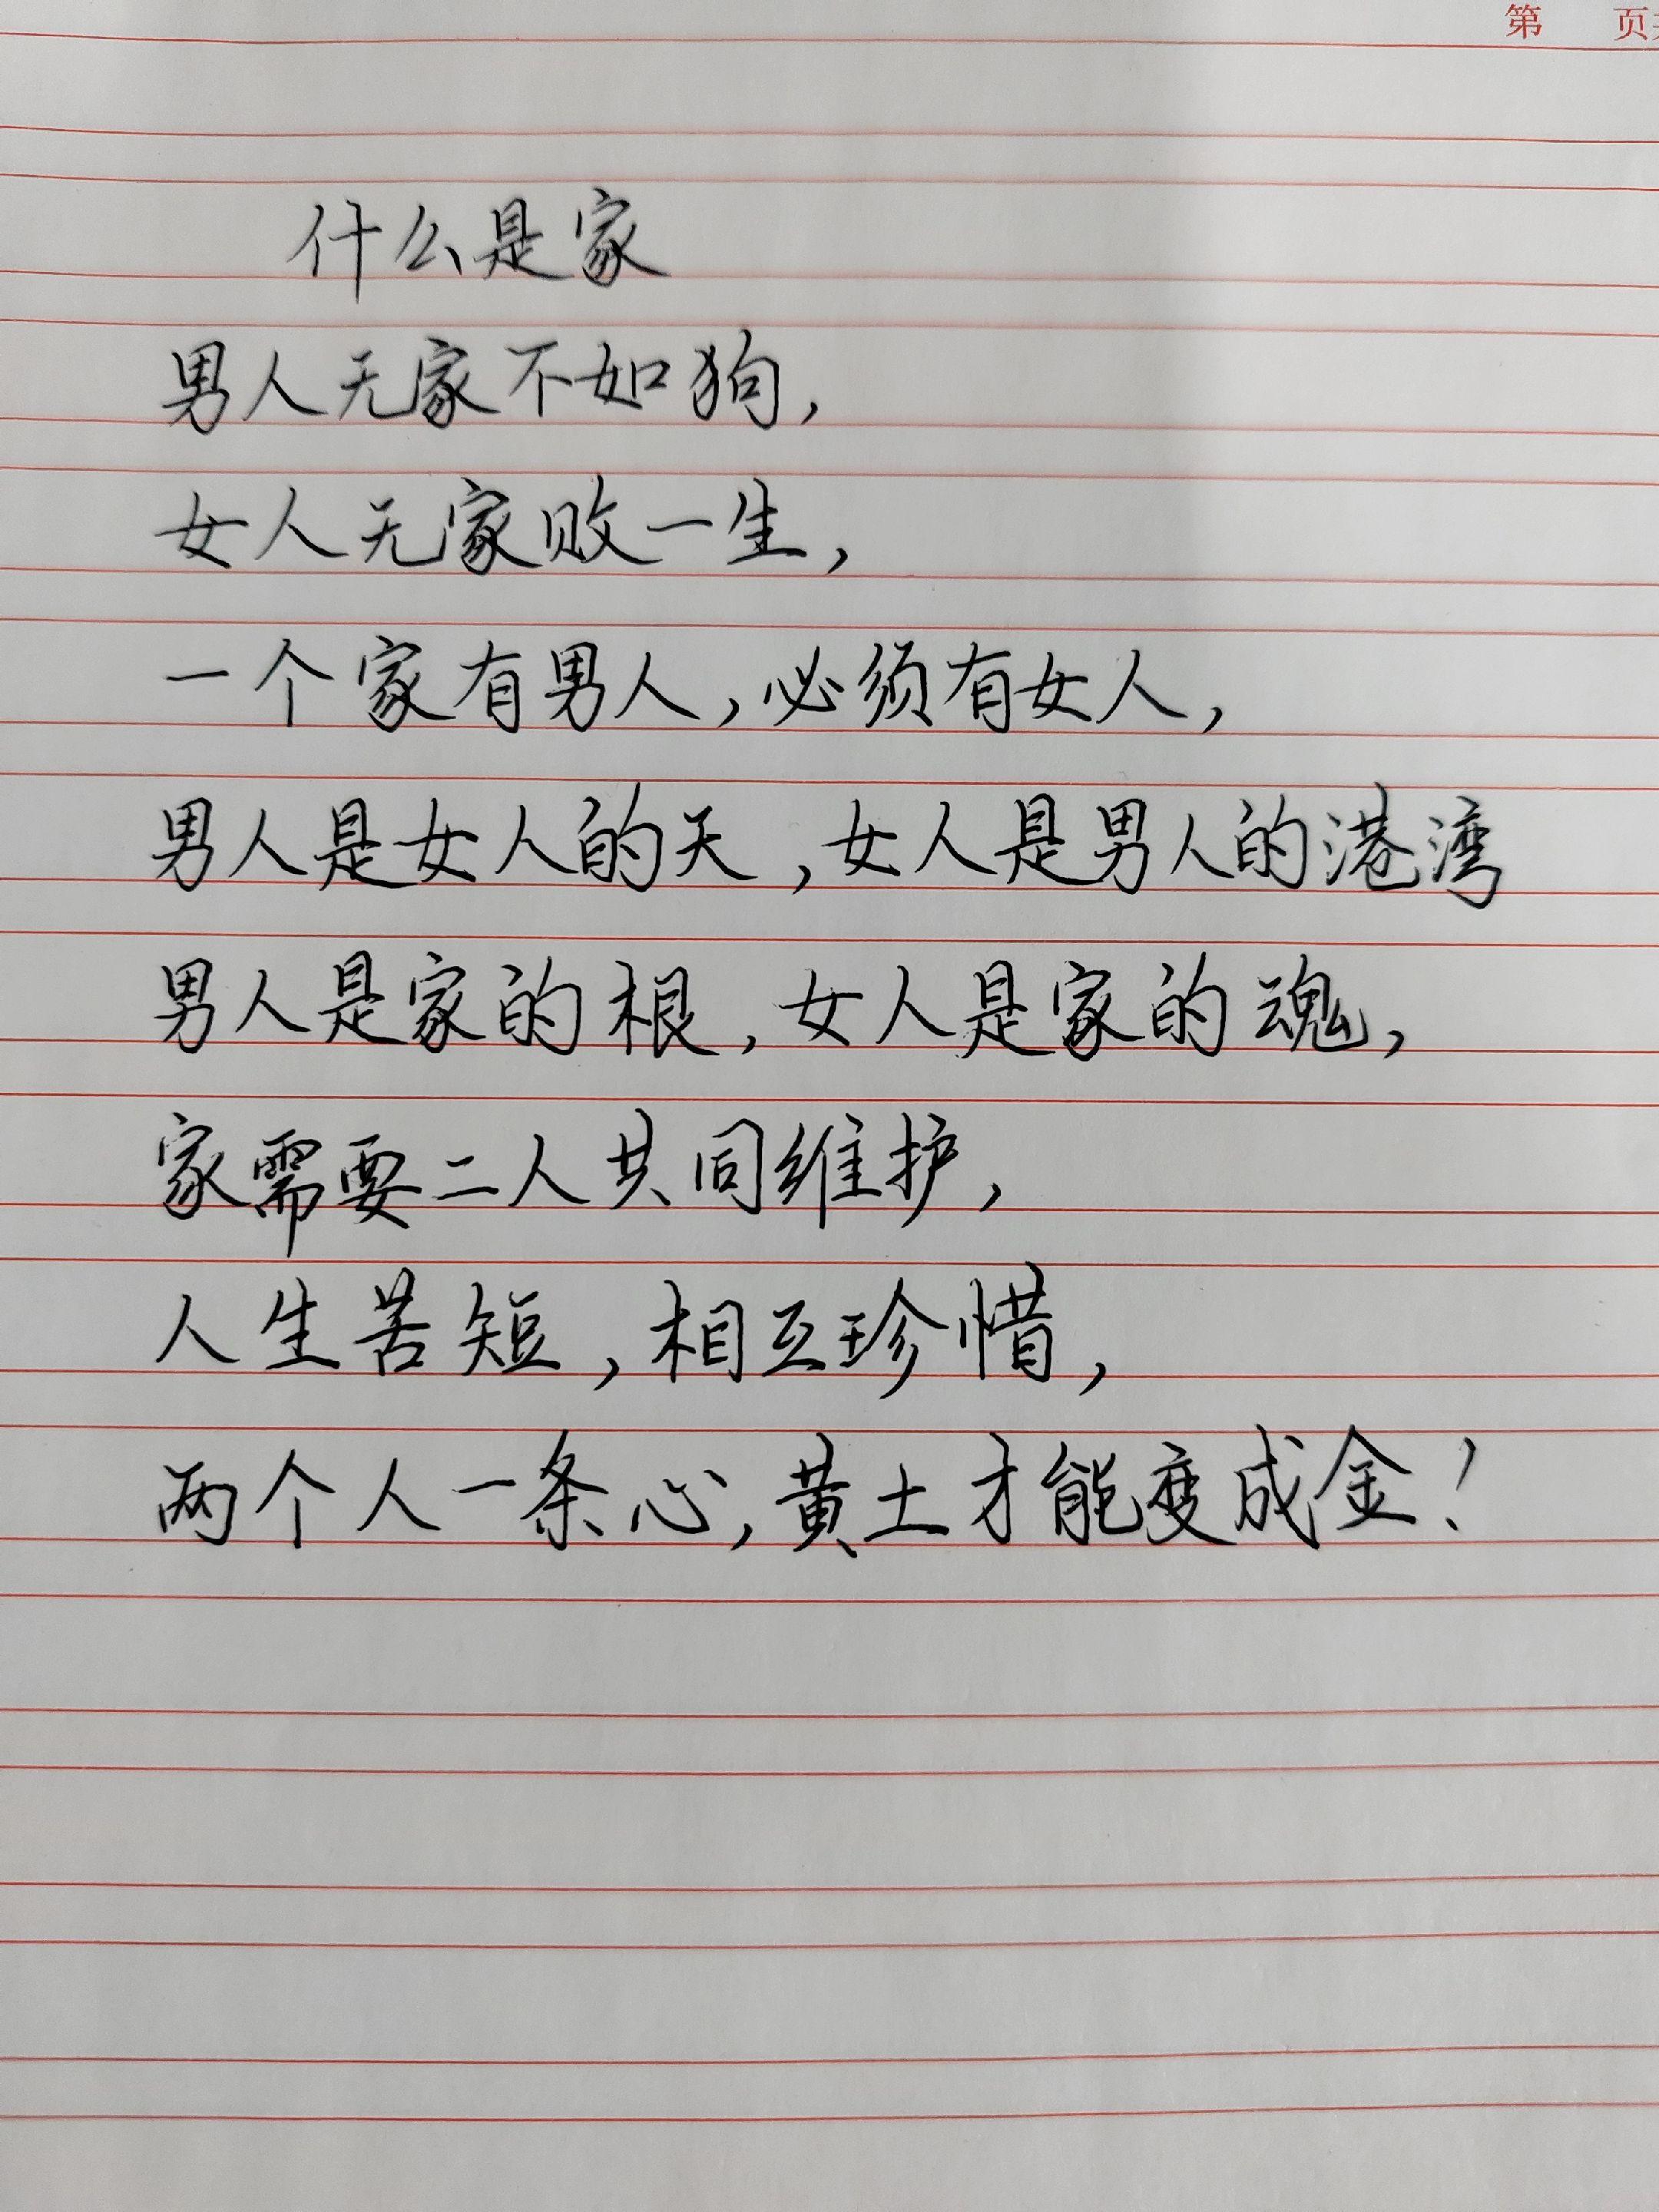 第 页
什么是家
男人无家不如狗,
女人无家败一生,
一个家有男人,必须有女人,
男人是女人的天,女人是男人的港湾
男人是家的根,女人是家的魂,
家需要二人共同维护,
人生苦短,相互珍惜,
两个人一条心,黄土才能变成金!